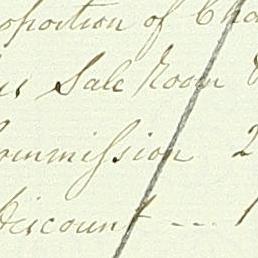 oportion of Cha
is Sale Room
ommission 2
Discount --- 1